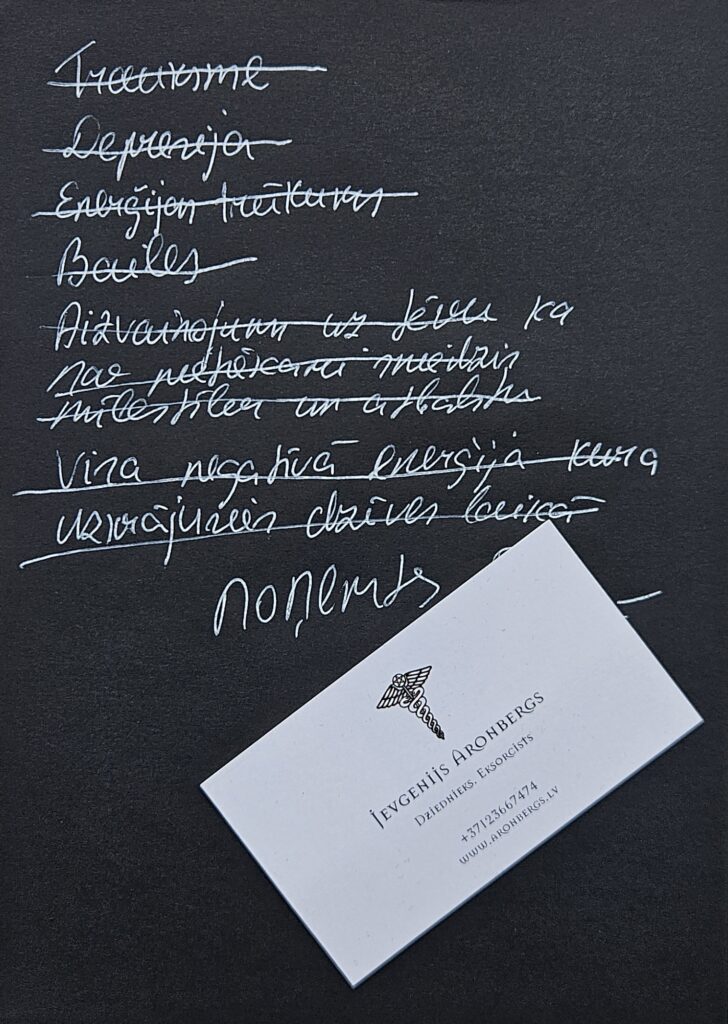 Trauksme
Depresija
Enerģijas trūkums
Bailes
Aizvainojums uz tēvu ka
nav pietiekami sniedzis
mīlestību un atbalstu
Visa negatīvā enerģija kura
uzkrājusies dzīves laikā
noņemts
Jevgenijs Aronbergs
Dziednieks, Eksorcists
+37123667474
www.aronbergs.lv